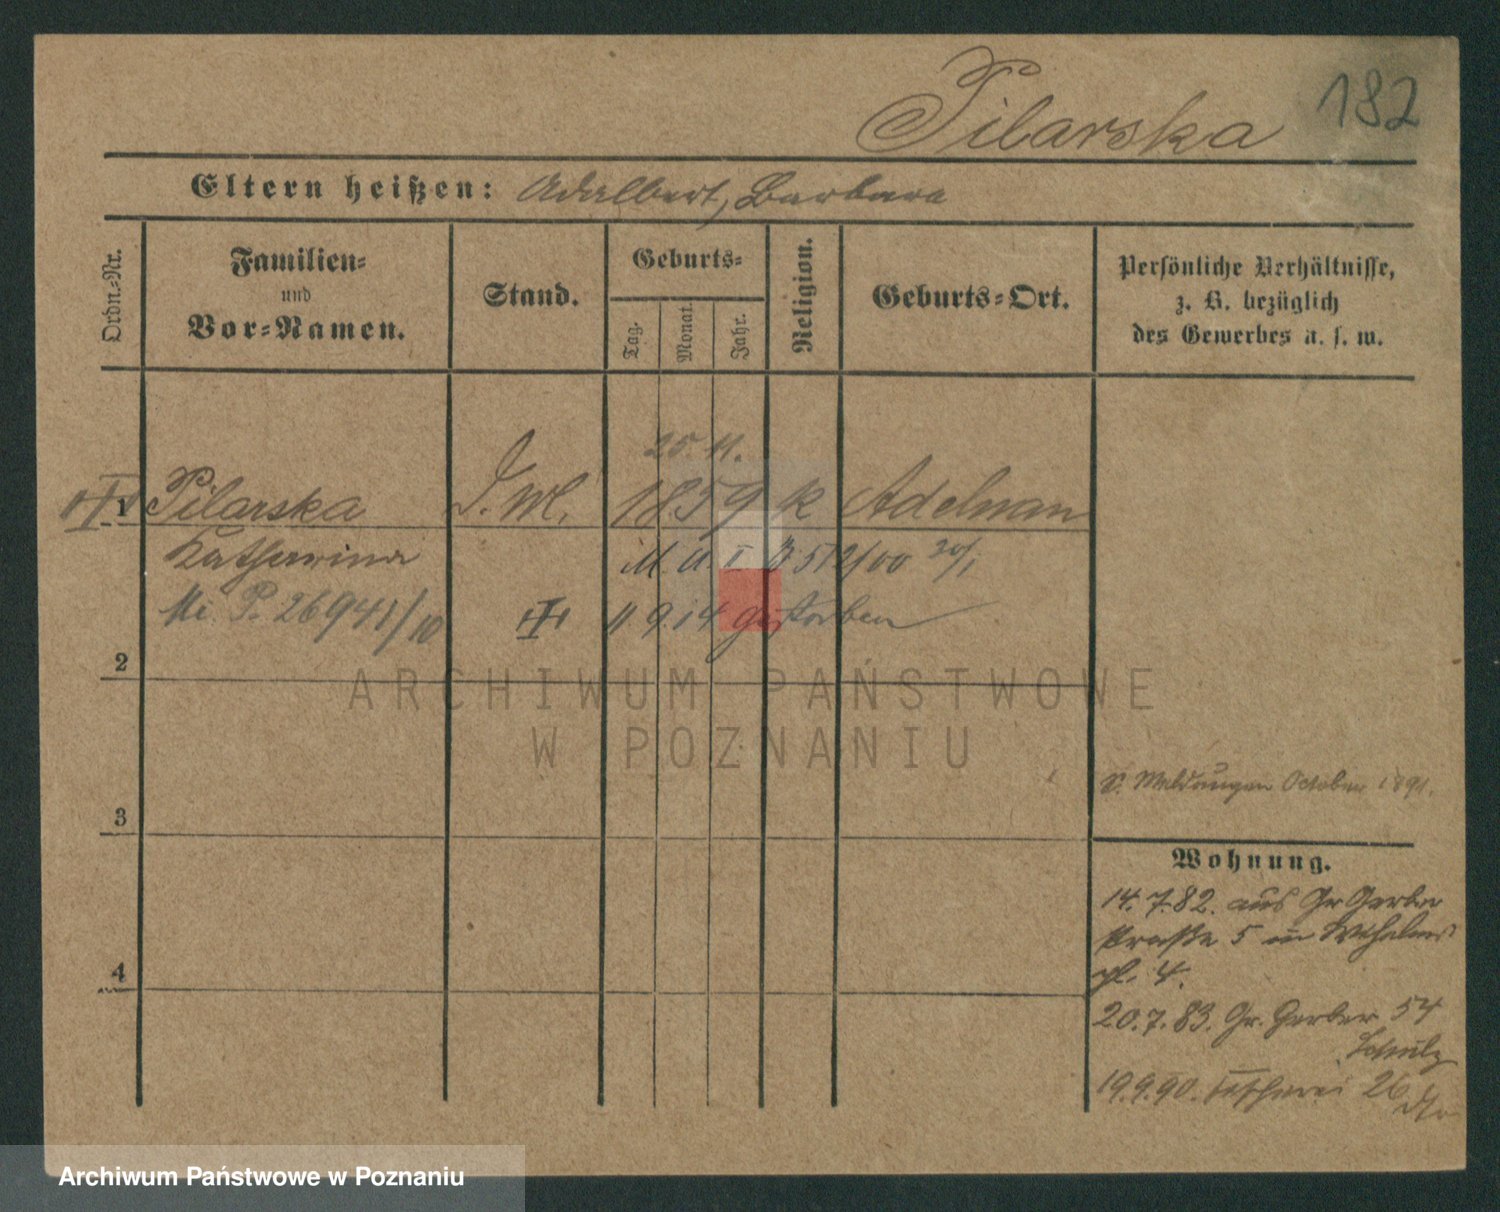 182
Pilarska
Eltern heißen: Adalbert, Barbara
Ordn.-Nr.
Familien-
und
Vor-Namen.
Stand.
Geburts-
Tag.
Monat.
Jahr.
Religion.
Geburts-Ort.
Persönliche Verhältnisse,
z. B. bezüglich
des Gewerbes u. s. w.
25. 11.
1 Pilarska D. M. 1859 k Adelnau
Katharina M. U. II 512/00 20/1
Mi. P. 26941/10 11 9 14 gestorben
2
ARCHIWUM PAŃSTWOWE
W POZNANIU
s. Meldungen October 1891.
3
Wohnung.
14.7.82. aus Gr Gerber
straße 5 in Wilhelms
pl. 4.
4
20.7.83. Gr. Gerber 54
Schulz
19.9.90. Fischerei 26
dto
Archiwum Państwowe w Poznaniu